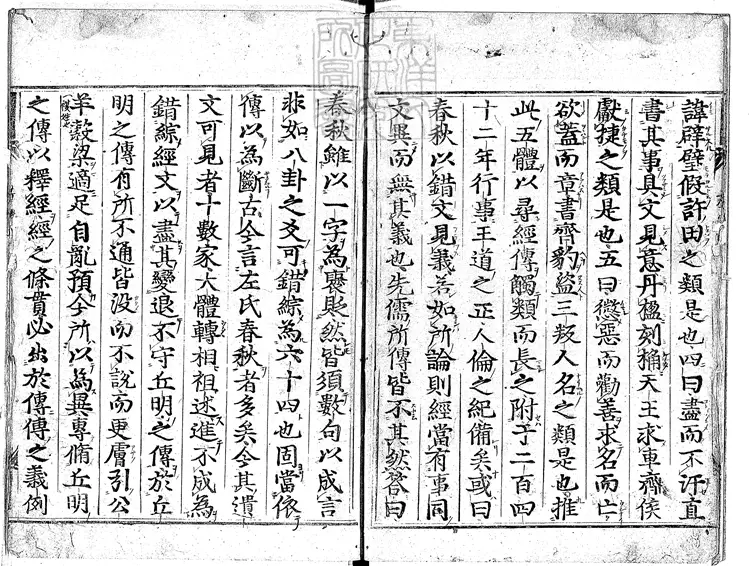 諱辟璧假許田之類是也四曰盡而不汙直
書其事具文見意丹楹刻桷天王求車齊侯
獻捷之類是也五曰懲惡而勸善求名而亡
欲蓋而章書齊豹盜三叛人名之類是也推
此五體以尋經傳觸類而長之附于二百四
十二年行事王道之正人倫之紀備矣或曰
春秋以錯文見義若如所論則經當有事同
文異而無其義也先儒所傳皆不其然荅曰
春秋雖以一字為褒貶然皆須數句以成言
非如八卦之爻可錯綜為六十四也固當依
傳以為斷古今言左氏春秋者多矣今其遺
文可見者十數家大體轉相祖述進不成為
錯綜經文以盡其變退不守丘明之傳於丘
明之傳有所不通皆沒而不說而更膚引公
羊穀梁適足自亂預今所以為異專脩丘明
之傳以釋經經之條貫必出於傳傳之義例